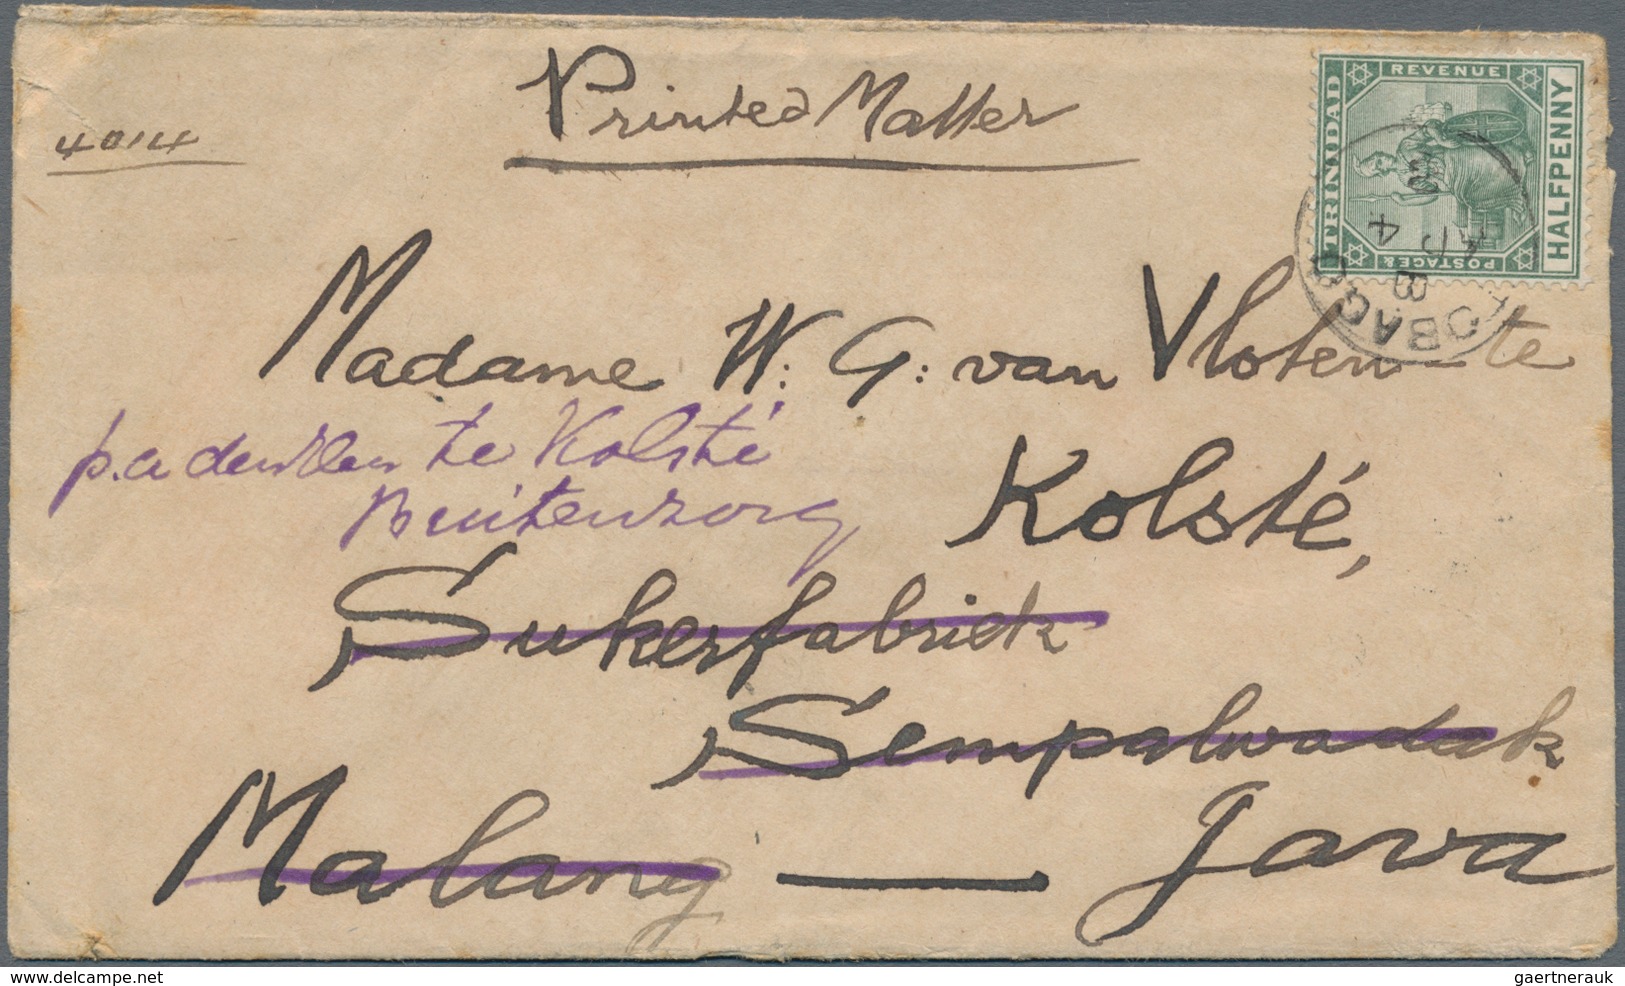 Printed Matter
4014
REVENUE
TRINIDAD
HALFPENNY
POSTAGE &
TOBAGO
B
AP 4
Madame W: G: van Vloten - te
p.a den Heer te Kolsté
Buitenzorg
Kolsté,
Sukerfabriek
Sempalwadak
Malang — Java
www.delcampe.net
gaertnerauk